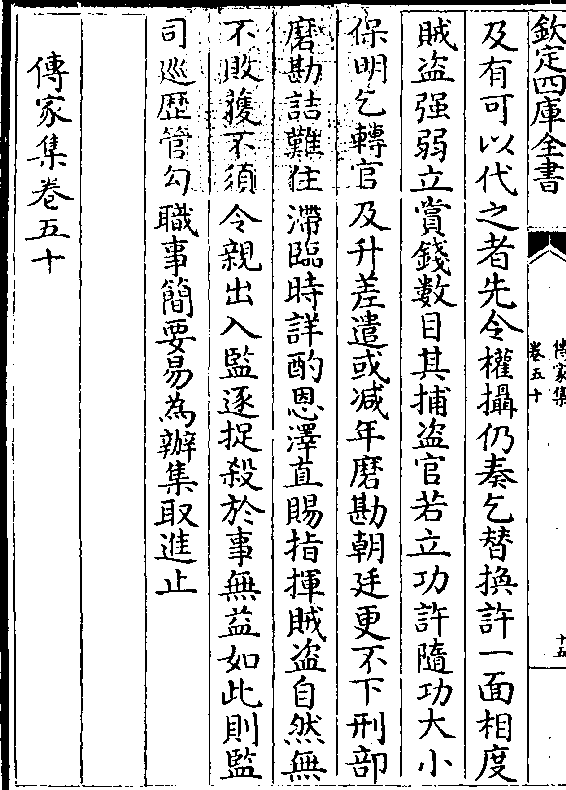 欽定四庫全書
傳家集
卷五十
十五
及有可以代之者先令權攝仍奏乞替換許一面相度
賊盗强弱立賞錢數目其捕盗官若立功許隨功大小
保明乞轉官及升差遣或减年磨勘朝廷更不下刑部
磨勘詰難住滯臨時詳酌恩澤直賜指揮賊盗自然無
不敗獲不須令親出入監逐捉殺於事無益如此則監
司巡歴管勾職事簡要易為辦集取進止
傳家集卷五十